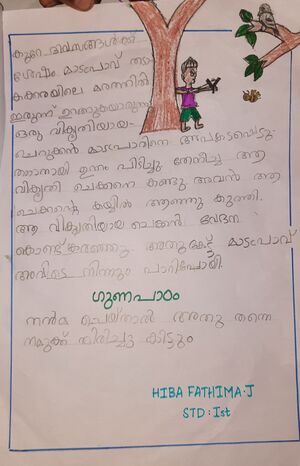 കുറേ ദിവസങ്ങൾക്ക്
ശേഷം മാടപ്രാവ് തടാ
കക്കരയിലെ മരത്തിൽ
ഇരുന്ന് ഉറങ്ങുകയായിരുന്നു
ഒരു വികൃതിയായ
ചെറുക്കൻ മാടപ്രാവിനെ അപകടപ്പെടു
ത്താനായി ഉന്നം പിടിച്ചു തേനീച്ച ആ
വികൃതി ചെക്കനെ കണ്ടു അവൻ ആ
ചെക്കന്റെ കയ്യിൽ ആഞ്ഞു കുത്തി.
ആ വികൃതിയായ ചെക്കൻ വേദന
കൊണ്ട് കരഞ്ഞു. അതുകേട്ട് മാടപ്രാവ്
അവിടെ നിന്നും പാറിപോയി.
ഗുണപാഠം
നന്മ ചെയ്താൽ അതു തന്നെ
നമുക്ക് തിരിച്ചു കിട്ടും
HIBA FATHIMA.J
STD: Ist